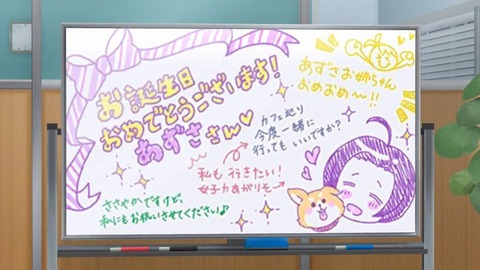 お誕生日
おめでとうございます!
あずささん♡
あずさお姉ちゃん
おめおめ〜!!
カフェ巡り
今度一緒に
行ってもいいですか?
私も行きたい!
女子力あがりそ〜
ささやかですけど、
私にもお祝いさせてください♪